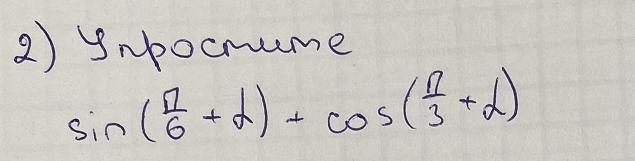 2) Упростите
sin(π/6 + α) + cos(π/3 + α)